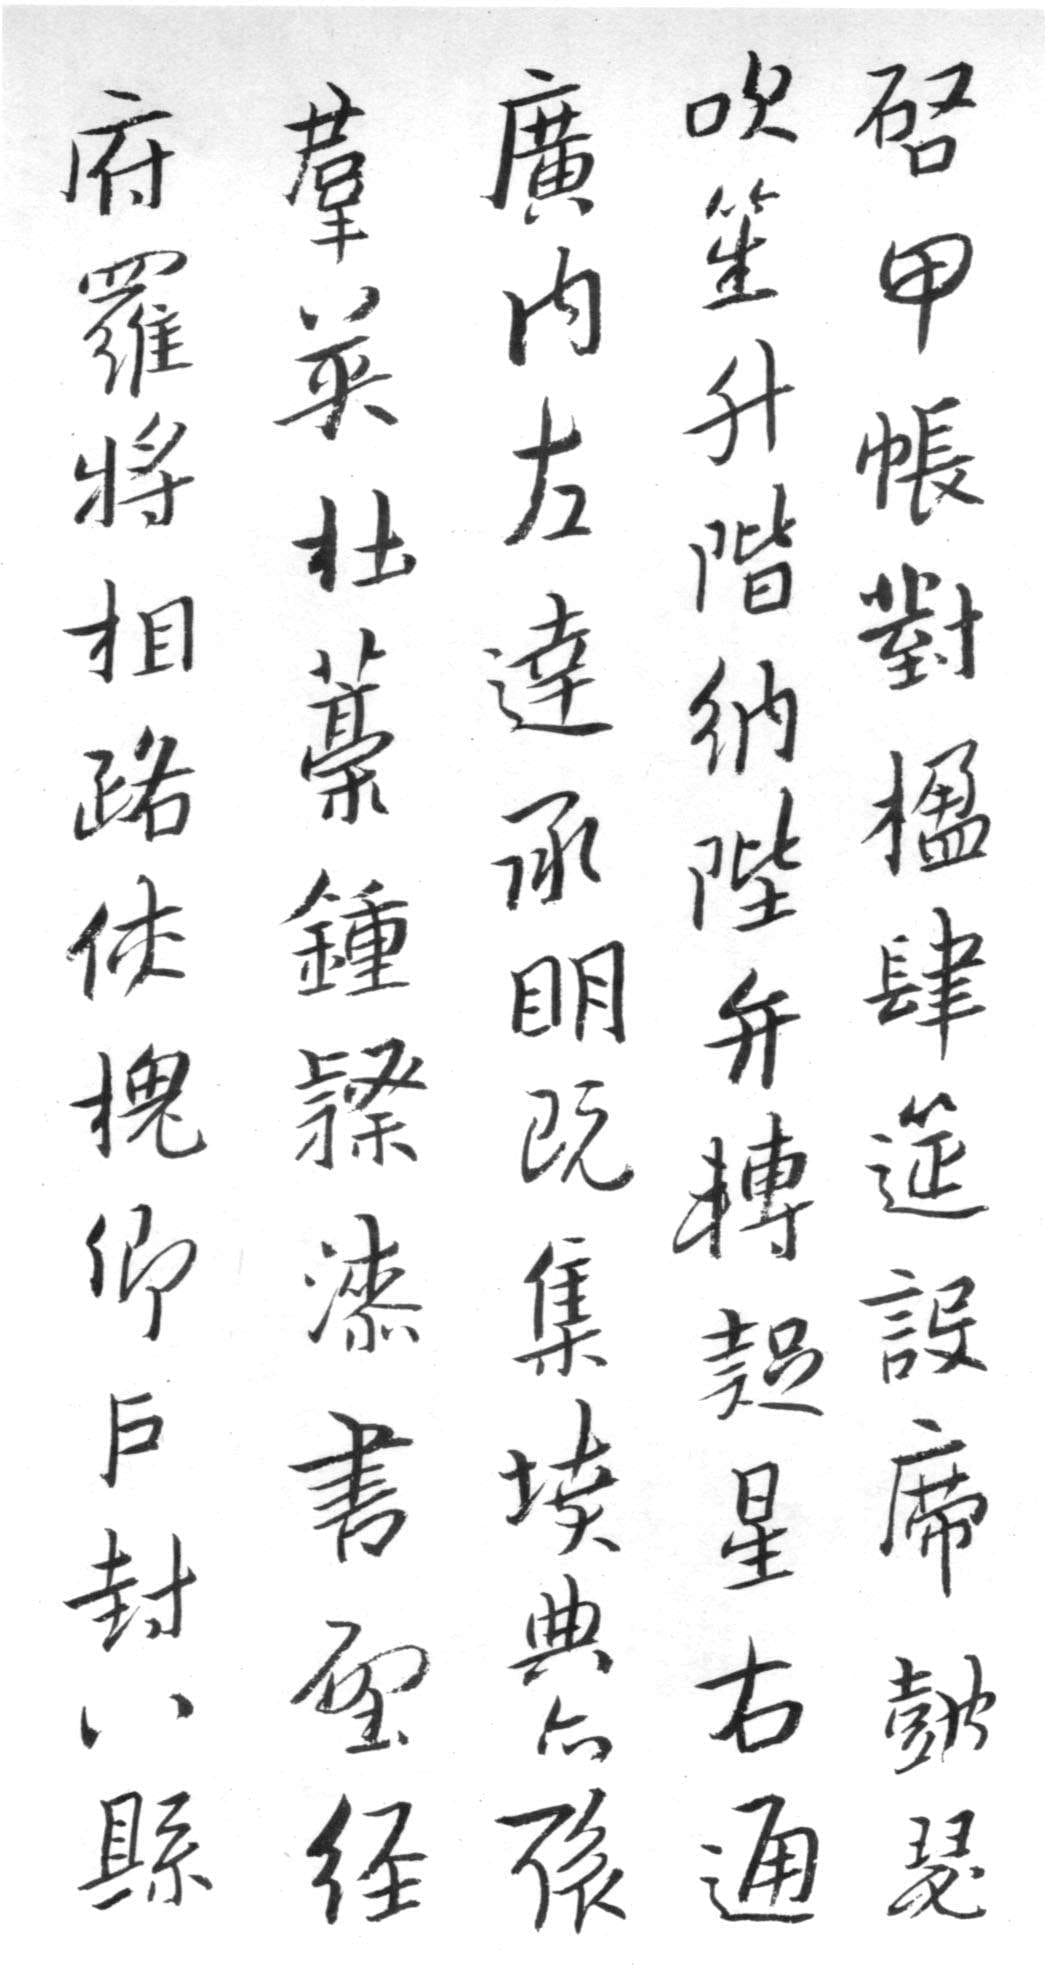 啓甲帳對楹肆筵設席鼓瑟
吹笙升階納陛弁轉疑星右通
廣內左達承明既集墳典亦聚
羣英杜藁鍾隸漆書壁經
府羅將相路俠槐卿戶封八縣